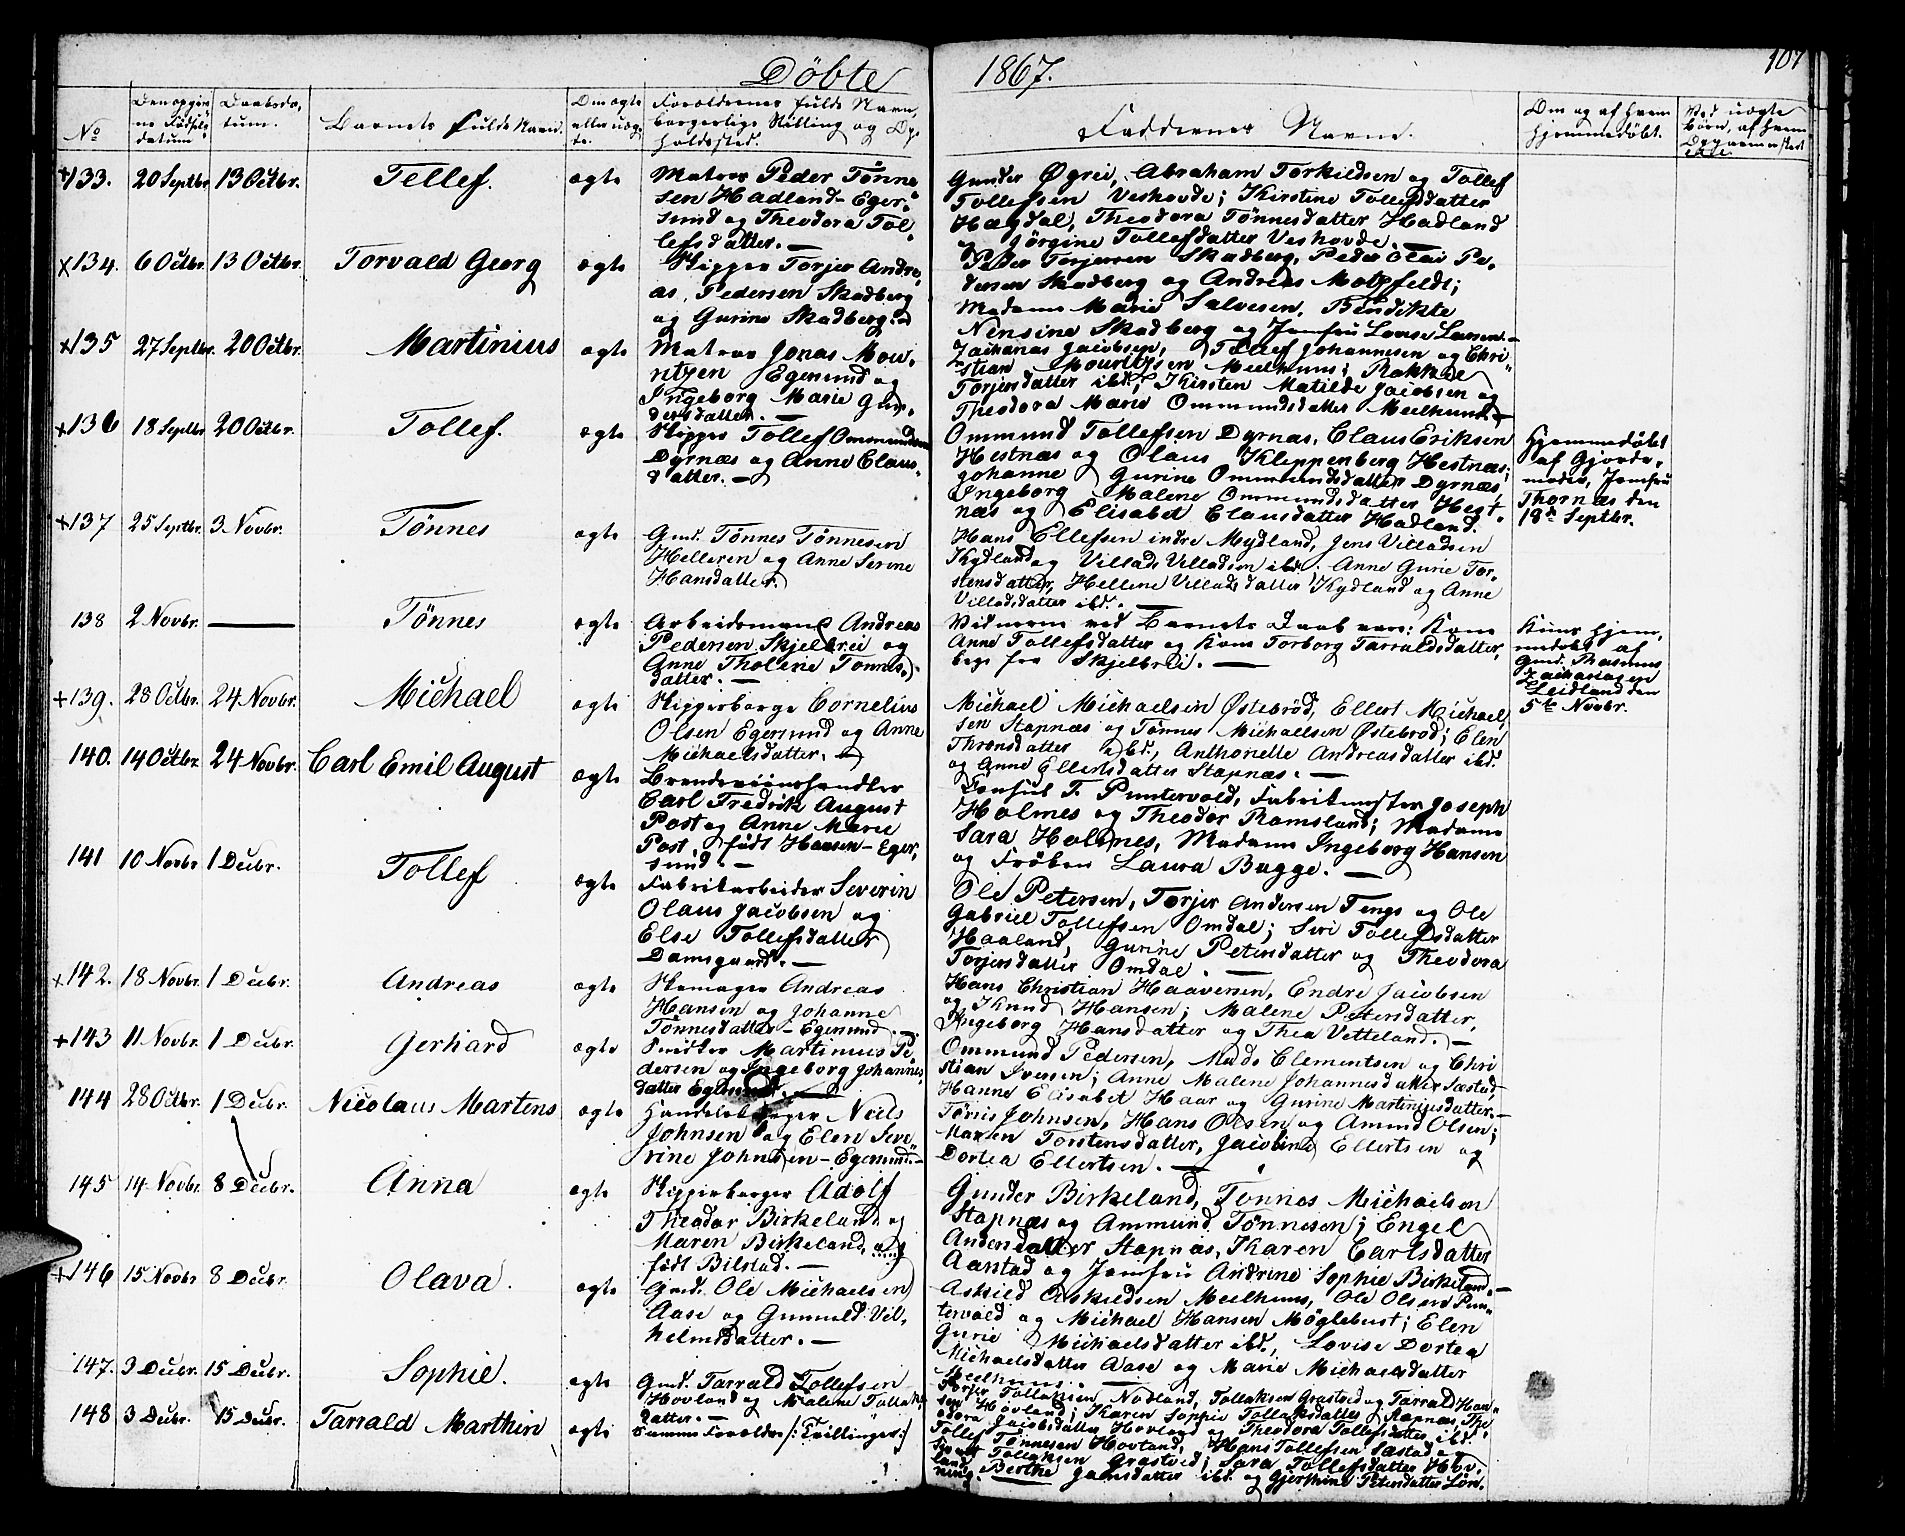 Døbte 1867.
107
No
Den opgiv-
ne Fødsels-
datum
Daabsda-
tum.
Barnets fulde Navn.
Om ægte
eller uæg-
te.
Forældrenes fulde Navn,
borgerlige Stilling og Op-
holdssted.
Faddernes Navne.
Om og af hvem
hjemmedøbt.
Ved uægte
Børn, af hvem
+133. 20 Septbr. 13 Octbr. Tellef. ægte
Matros Peder Tønne-
sen Hadland - Eger-
sund og Theodora Tol-
lefsdatter. —
Gunder Øgrei, Abraham Torkildsen og Tollef
Tollefsen Veshovde; Kirstine Tollefsdatter
Hægdal, Theodora Tønnesdatter Hadland
og Jørgine Tollefsdatter Veshovde. —
x134. 6 Octbr. 13 Octbr. Torvald Georg ægte
Skipper Torjer Andre-
as Pedersen Skadberg
og Gurine Skadberg. —
Peder Torjersen Skadberg, Peder Olai Pe-
dersen Skadberg og Andreas Motzfeldt;
Madame Marie Salvesen, Bendikte
Nensine Skadberg og Jomfru Lovise Larsen. —
x135 27 Septbr. 20 Octbr. Martinius ægte
Matros Jonas Mou-
ritzen Egersund og
Ingeborg Marie Gun-
dersdatter. —
Zacharias Jacobsen, Tollef Johannesen og Chri-
stian Mouritzsen Meelhuus; Rakkel
Torjersdatter ibd., Kirsten Matilde Jacobsen og
Theodora Marie Ommundsdatter Meelhuus. —
+136 18 Septbr 20 Octbr. Tollef. ægte
Skipper Tollef Ommundsen
Dyrnæs og Anne Claus-
datter. —
Ommund Tollefsen Dyrnæs, Claus Eriksen
Hestnæs og Olaus Kleppenberg Hestnæs;
Johanne Gurine Ommundsdatter Dyrnæs,
Ingeborg Malene Ommundsdatter Hest-
næs og Elisabet Clausdatter Hadland.
Hjemmedøbt
af Gjorde-
moder, Jomfru
Thornæs den
18de Septbr.
+137 25 Septbr. 3 Novbr. Tønnes ægte
Gmd. Tønnes Tønnesen
Helleren og Anne Serine
Hansdatter.
Hans Ellefsen indre Mydland, Jens Villadsen
Kydland og Villads Villadsen ibd.; Anne Gurie Tor-
stensdatter, Hellene Villadsdatter Kydland og Anne
Villadsdatter ibd. —
138 2 Novbr. — Tønnes ægte
Arbeidsmand Andreas
Pedersen Skjelbrei og
Anne Tholene Tønnes-
datter. —
Vidnerne ved Barnets Daab vare: Kone
Anne Tollefsdatter og Kone Torborg Tarraldsdatter,
begge fra Skjelbrei. —
Kun hjem-
medøbt af
Gmd. Rasmus
Zachariasen
Leidland den
5te Novbr.
+139. 28 Octbr. 24 Novbr. Michael ægte
Skipperborger Cornelius
Olsen Egersund og Anne
Michaelsdatter. —
Michael Michaelsen Østebrød, Ellert Michael-
sen Stapnæs og Tønnes Michaelsen Østebrød; Elen
Thronsdatter ibd., Anthonette Andreasdatter ibd.
og Anne Ellertsdatter Stapnæs. —
140. 14 Octbr. 24 Novbr. Carl Emil August ægte
Brendeviinshandler
Carl Fredrik August
Post og Anne Marie
Post, født Hansen - Eger-
sund. —
Consul F. Puntervold, Fabrikmester Joseph
Holmes og Theodor Ramsland; Madame
Sara Holmes, Madame Ingeborg Hansen
og Frøken Laura Bugge. —
141 10 Novbr 1 Decbr. Tollef ægte
Fabrikarbeider Severin
Olaus Jacobsen og
Else Tollefsdatter
Damsgaard. —
Ole Petersen, Torjer Andersen Tengs og Ole
Gabriel Tollefsen Omdal; Siri Tollefsdatter
Haaland, Gurine Petersdatter og Theodora
Torjersdatter Omdal. —
+142. 18 Novbr. 1 Decbr. Andreas ægte
Skomager Andreas
Hansen og Johanne
Tønnesdatter - Egersund. —
Hans Christian Haaversen, Endre Jacobsen
og Knud Hansen; Malene Petersdatter,
Ingeborg Hansdatter og Thea Vetteland. —
+143 11 Novbr. 1 Decbr. Gerhard ægte
Snedker Martinius Pe-
dersen og Ingeborg Johannes-
datter Egersund. —
Ommund Pedersen, Mads Clementsen og Chri
stian Iversen; Anne Malene Johannesdatter Sæstad,
Hanne Elisabet Haar og Gurine Martiniusdatter. —
144 28 Octbr. 1 Decbr. Nicolaus Martens ægte
Handelsborger Neels
Johnsen og Elen Seve-
rine Johnsen - Egersund. —
Tønis Johnsen, Hans Olsen og Amund Olsen;
Maren Torstensdatter, Jacobine Ellertsen og
Dortea Ellertsen. —
145 14 Novbr. 8 Decbr. Anna ægte
Skipperborger Adolf
Theodor Birkeland og
Maren Birkeland,
født Bilstad. —
Gunder Birkeland, Tønnes Michaelsen
Stapnæs og Ammund Tønnesen; Engel
Andersdatter Stapnæs, Karen Carlsdatter
Aarstad og Jomfru Andrine Sophie Birkeland. —
+146 15 Novbr 8 Decbr. Olava. ægte
Gmd. Ole Michaelsen
Aase og Gunnild Vil-
helmsdatter. —
Askild Askildsen Meelhuus, Ole Olsen Pun-
tervold og Michael Hansen Møglebust; Elen
Gurie Michaelsdatter ibd., Lovise Dortea
Michaelsdatter Aase og Marie Michaelsdatter
Meelhuus. —
147. 3 Decbr. 15 Decbr. Sophie. ægte
Gmd. Tarrald Tollefsen
Hovland og Malene Tollaks-
datter. —
Torjer Tollaksen Nodland, Tollaksen Grøstved og Tarrald Han-
sen Hovland; Karen Sophie Tollaksdatter Stapnæs, The-
odora Jacobsdatter Hovland og Theodora Tollefsdatter ibd.
148 3 Decbr. 15 Decbr. Tarrald Marthin ægte
Samme Forældre /: Tvillinger :/
Tollef Tønnesen Hovland, Hans Tollefsen Sæstad og
Tollaksen Grøstved; Sara Tollefsdatter Hov-
land, Berthe Jonasdatter ibd. og Gjertrine Petersdatter Løn-
ning.